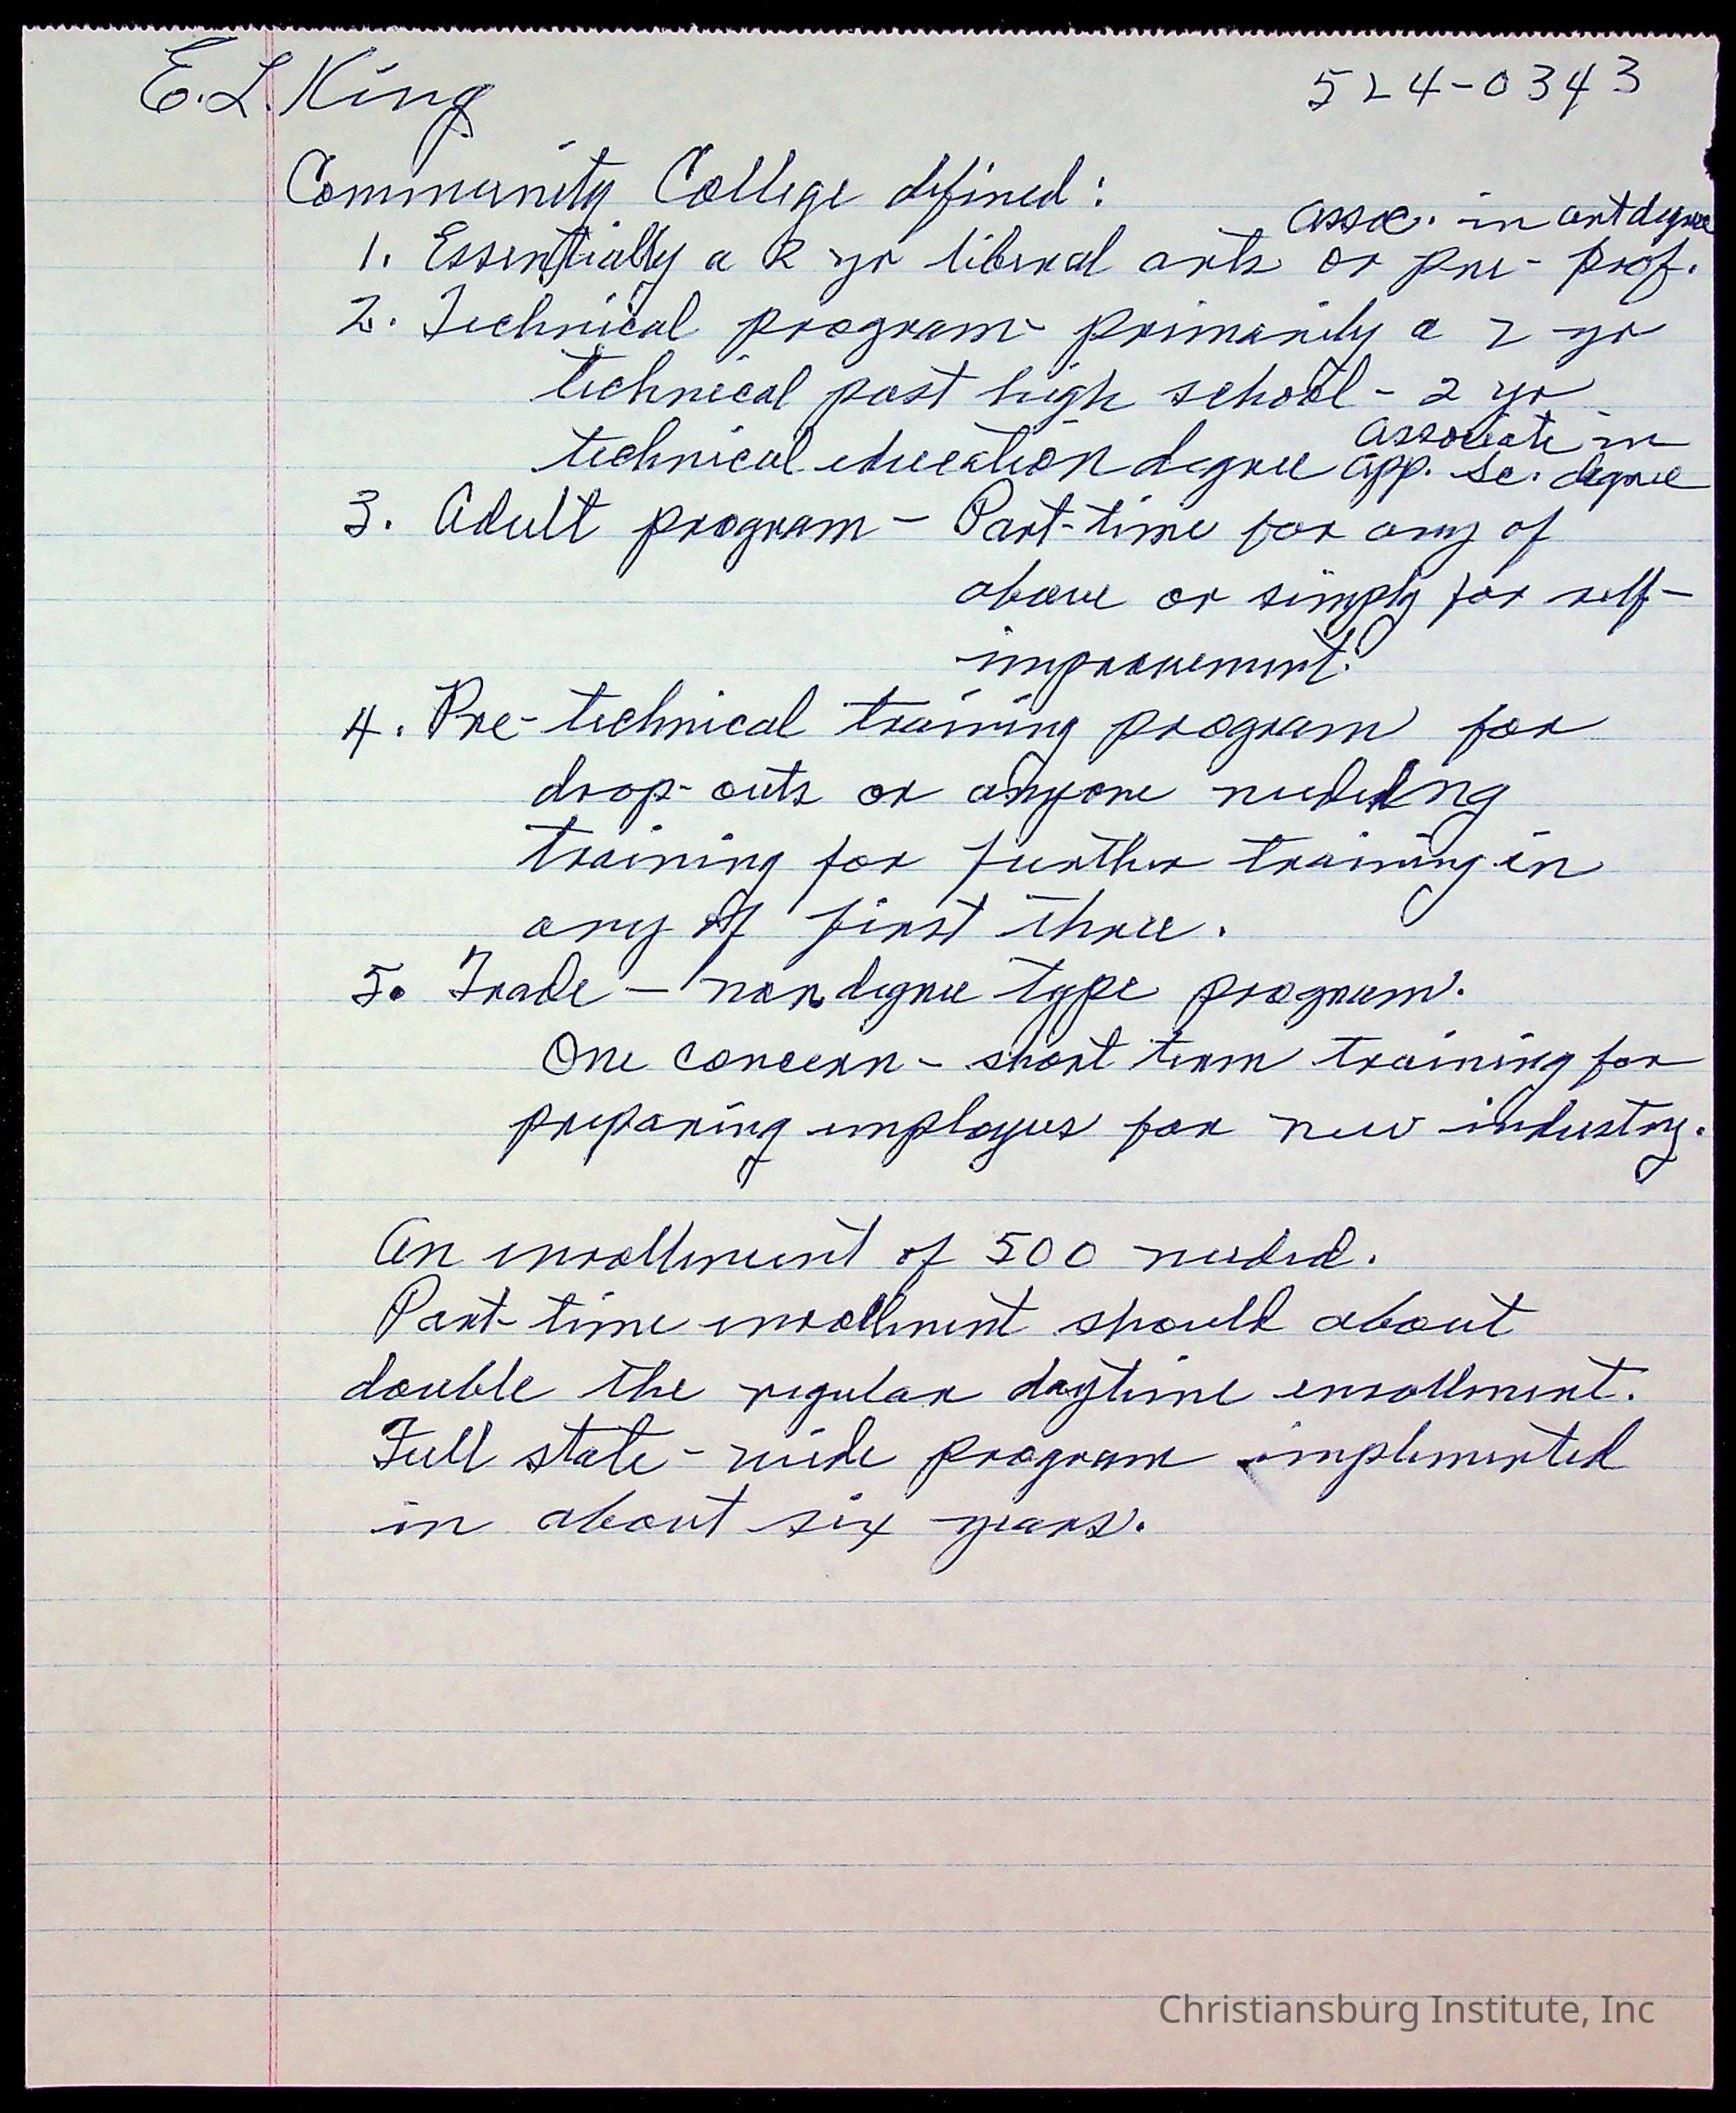 E. L. King 524-0343
Community College defined:
assoc. in art degree
1. Essentially a 2 yr liberal arts or pre-prof.
2. Technical program - primarily a 2 yr
technical post high school - 2 yr
technical education degree associate in
app. sc. degree
3. Adult program - Part-time for any of
above or simply for self-
improvement.
4. Pre-technical training program for
drop-outs or anyone needing
training for further training in
any of first three.
5. Trade - non degree type program.
One concern - short term training for
preparing employees for new industry.
An enrollment of 500 needed.
Part-time enrollment should about
double the regular daytime enrollment.
Full state-wide program implemented
in about six years.
Christiansburg Institute, Inc